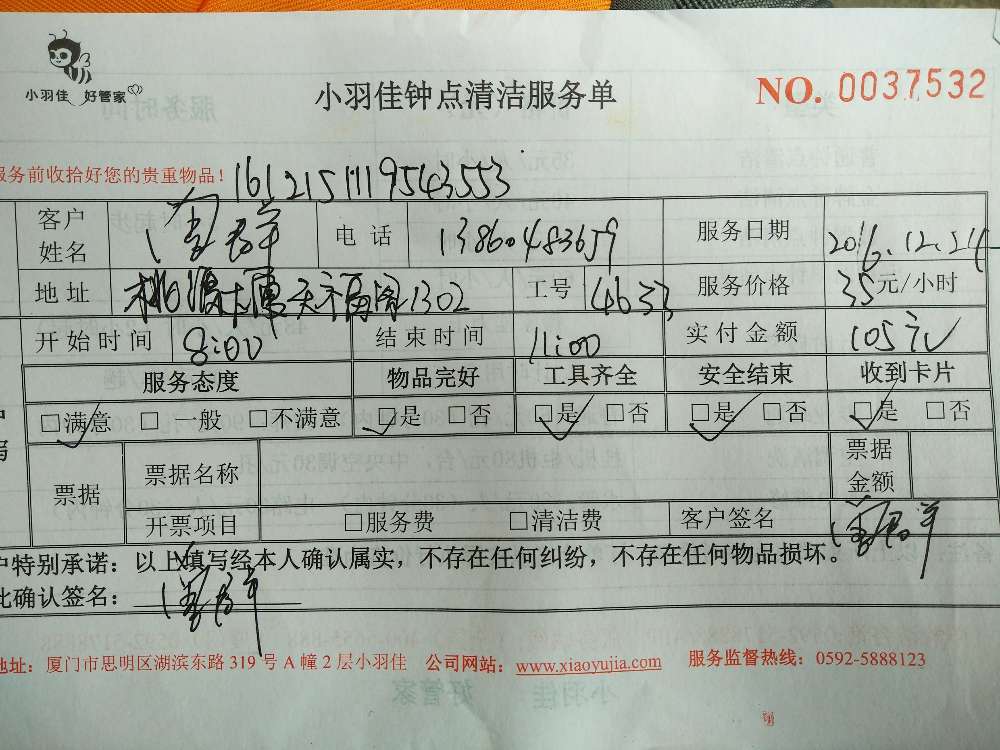 小羽佳 好管家
小羽佳钟点清洁服务单
NO. 0037532
服务前收拾好您的贵重物品！ 161215111119543553
客户姓名 电话 13860483659 服务日期 2016.12.24
地址 桃源大厦天福阁1302 工号 4633 服务价格 35元/小时
开始时间 8:00 结束时间 11:00 实付金额 105元
服务态度 物品完好 工具齐全 安全结束 收到卡片
□满意 □一般 □不满意 □是 □否 □是 □否 □是 □否 □是 □否
票据 票据名称 票据金额
开票项目 □服务费 □清洁费 客户签名
户特别承诺：以上填写经本人确认属实，不存在任何纠纷，不存在任何物品损坏。
此确认签名：
地址：厦门市思明区湖滨东路319号A幢2层小羽佳 公司网站：www.xiaoyujia.com 服务监督热线：0592-5888123